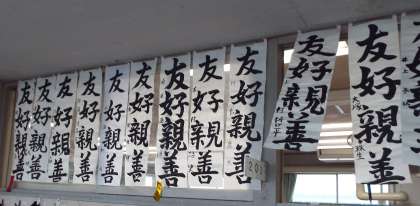 友好親善
友好親善
友好親善
友好親善
友好親善
友好親善
友好親善
友好親善
友好親善
友好親善
友好親善